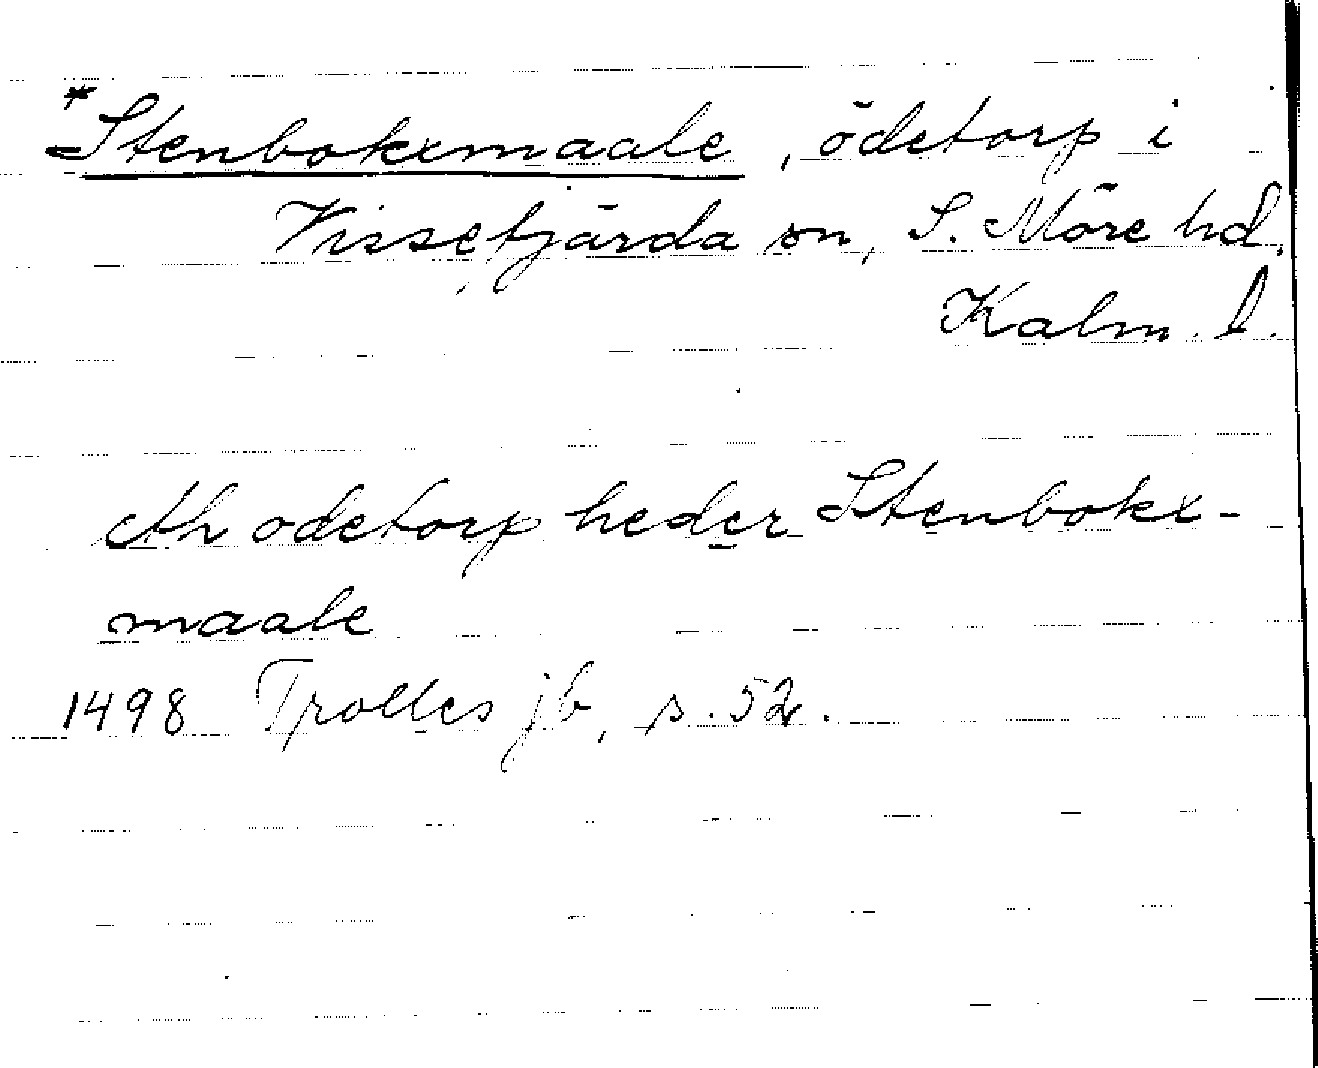 *Stenbokxmaale, ödetorp i
Vissefjärda sn, S. Möre hd.
Kalm. l.
eth odetorp heder Stenbokx-
maale
1498 Trolles jb, s. 52.